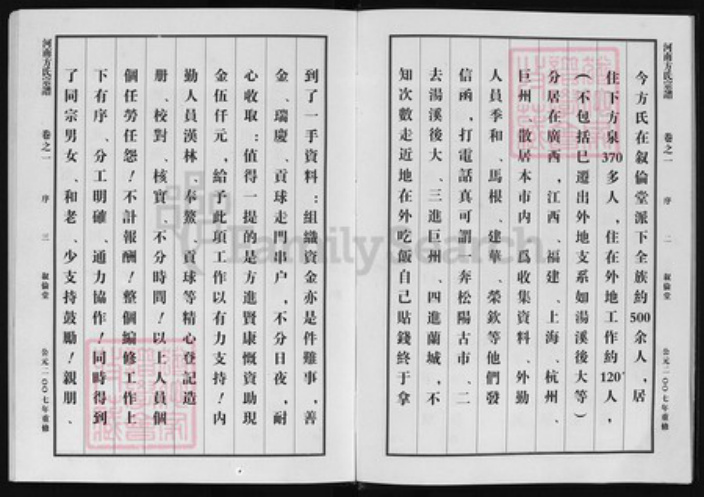 河南方氏宗譜 卷之一 序 二 叙倫堂 公元二〇〇七年重修
今方氏在叙倫堂派下全族約500余人，居
住下方泉370多人，住在外地工作約120人，
（不包括已遷出外地支系如湯溪後大等）
分居在廣西，江西、福建、上海、杭州、
巨州、散居本市内、爲收集資料、外勤
人員季和、馬根、建華、榮欽等他們發
信函，打電話真可謂一奔松陽古市、二
去湯溪後大、三進巨州、四進蘭城，不
知次數走近地在外吃飯自己貼錢終于拿
到了一手資料：組織資金亦是件難事，善
金、瑞慶、貢球走門串户，不分日夜，耐
心收取：值得一提的是方進賢康慨資助現
金伍仟元，給予此項工作以有力支持！内
勤人員漢林、奉鰲、貢球等精心登記造
册、校對、核實、不分時間！以上人員個
個任勞任怨！不計報酬！整個編修工作上
下有序、分工明確、通力協作！同時得到
了同宗男女、和老、少支持鼓勵！親朋、
河南方氏宗譜 卷之一 序 三 叙倫堂 公元二〇〇七年重修
FamilySearch